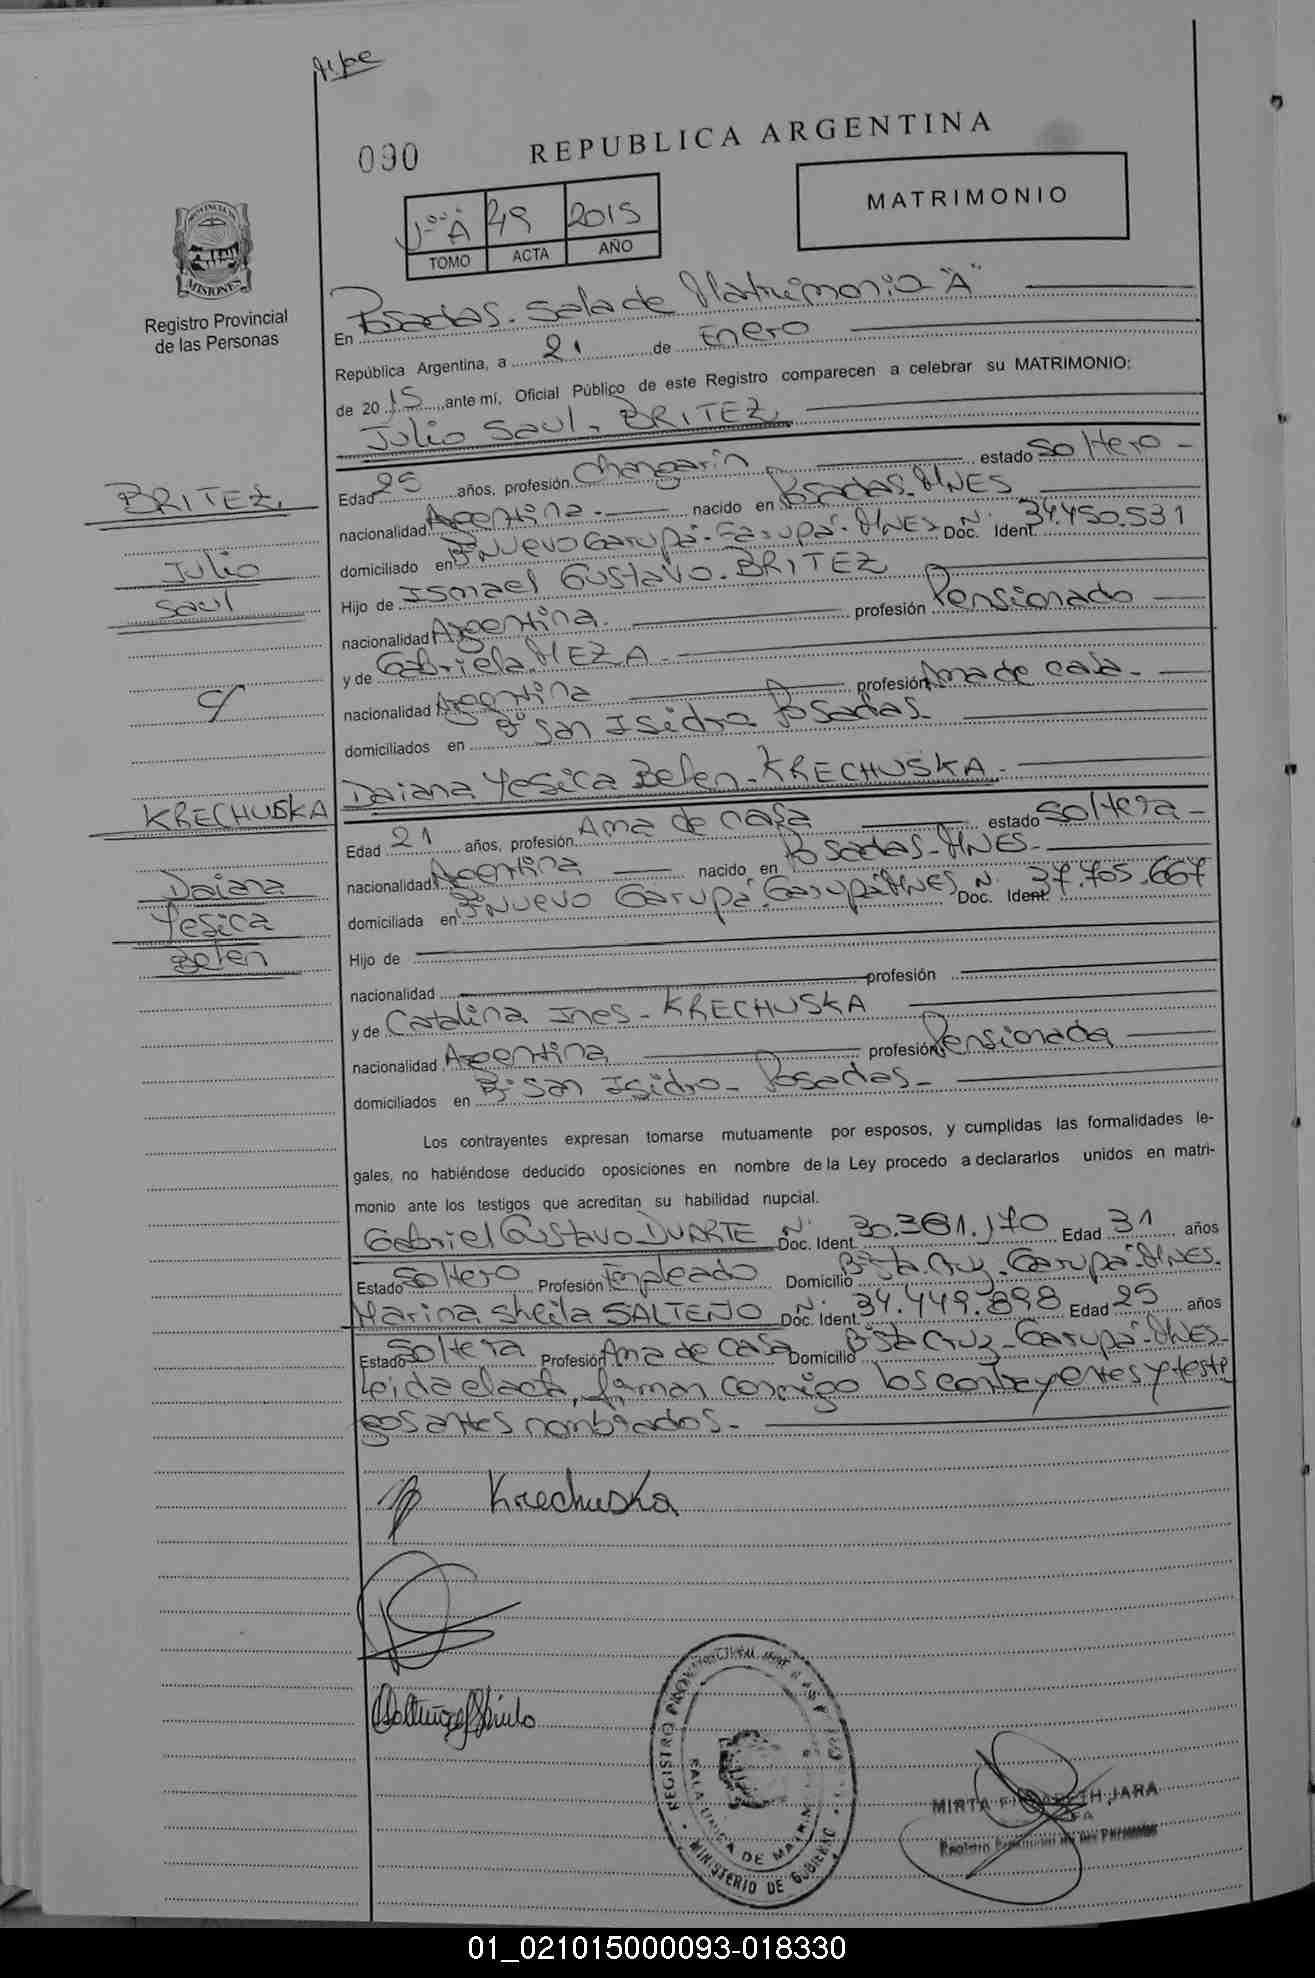 090
REPUBLICA ARGENTINA
MATRIMONIO
1º "A" 49 2015
TOMO ACTA AÑO
MISIONES
Registro Provincial
de las Personas
En Posadas. Sala de Matrimonio "A"
República Argentina, a 21 de Enero
de 2015, ante mí, Oficial Público de este Registro comparecen a celebrar su MATRIMONIO:
Julio Saul, BRITEZ.
Edad 25 años, profesión Changarin estado soltero -
nacionalidad Argentina. nacido en Posadas. MNES
domiciliado en Bº Nuevo Garupá - Garupá - MNES Doc. Ident. Nº 34.450.531
Hijo de Ismael Gustavo. BRITEZ
nacionalidad Argentina. profesión Pensionado
y de Gabriela. MEZA -
nacionalidad Argentina profesión Ama de casa -
domiciliados en Bº San Isidro Posadas -
BRITEZ,
Julio
Saul
c/
KRECHUSKA
Daiana
Yesica
Belen
Daiana Yesica Belen - KRECHUSKA -
Edad 21 años, profesión Ama de casa estado soltera -
nacionalidad Argentina nacido en Posadas - MNES -
domiciliada en Bº Nuevo Garupá. Garupá MNES Doc. Ident. Nº 37.705.667
Hijo de
nacionalidad profesión
y de Catalina Ines - KRECHUSKA
nacionalidad Argentina profesión Pensionada
domiciliados en Bº San Isidro - Posadas -
Los contrayentes expresan tomarse mutuamente por esposos, y cumplidas las formalidades le-
gales, no habiéndose deducido oposiciones en nombre de la Ley procedo a declararlos unidos en matri-
monio ante los testigos que acreditan su habilidad nupcial.
Gabriel Gustavo DUARTE Doc. Ident. Nº 30.361.170 Edad 31 años
Estado Soltero Profesión Empleado Domicilio Bº Sta. Cruz - Garupá - MNES.
Marina Sheila SALTENO Doc. Ident. Nº 34.449.898 Edad 25 años
Estado Soltera Profesión Ama de casa Domicilio Bº Sta Cruz - Garupá - MNES -
Leida el acta, firman conmigo los contrayentes y testi
gos antes nombrados -
Krechuska
REGISTRO
SALA UNICA DE MATRIM
MINISTERIO DE GOBIERNO
MIRTA ELIZABETH JARA
Registro Provincial de las Personas
01_021015000093-018330